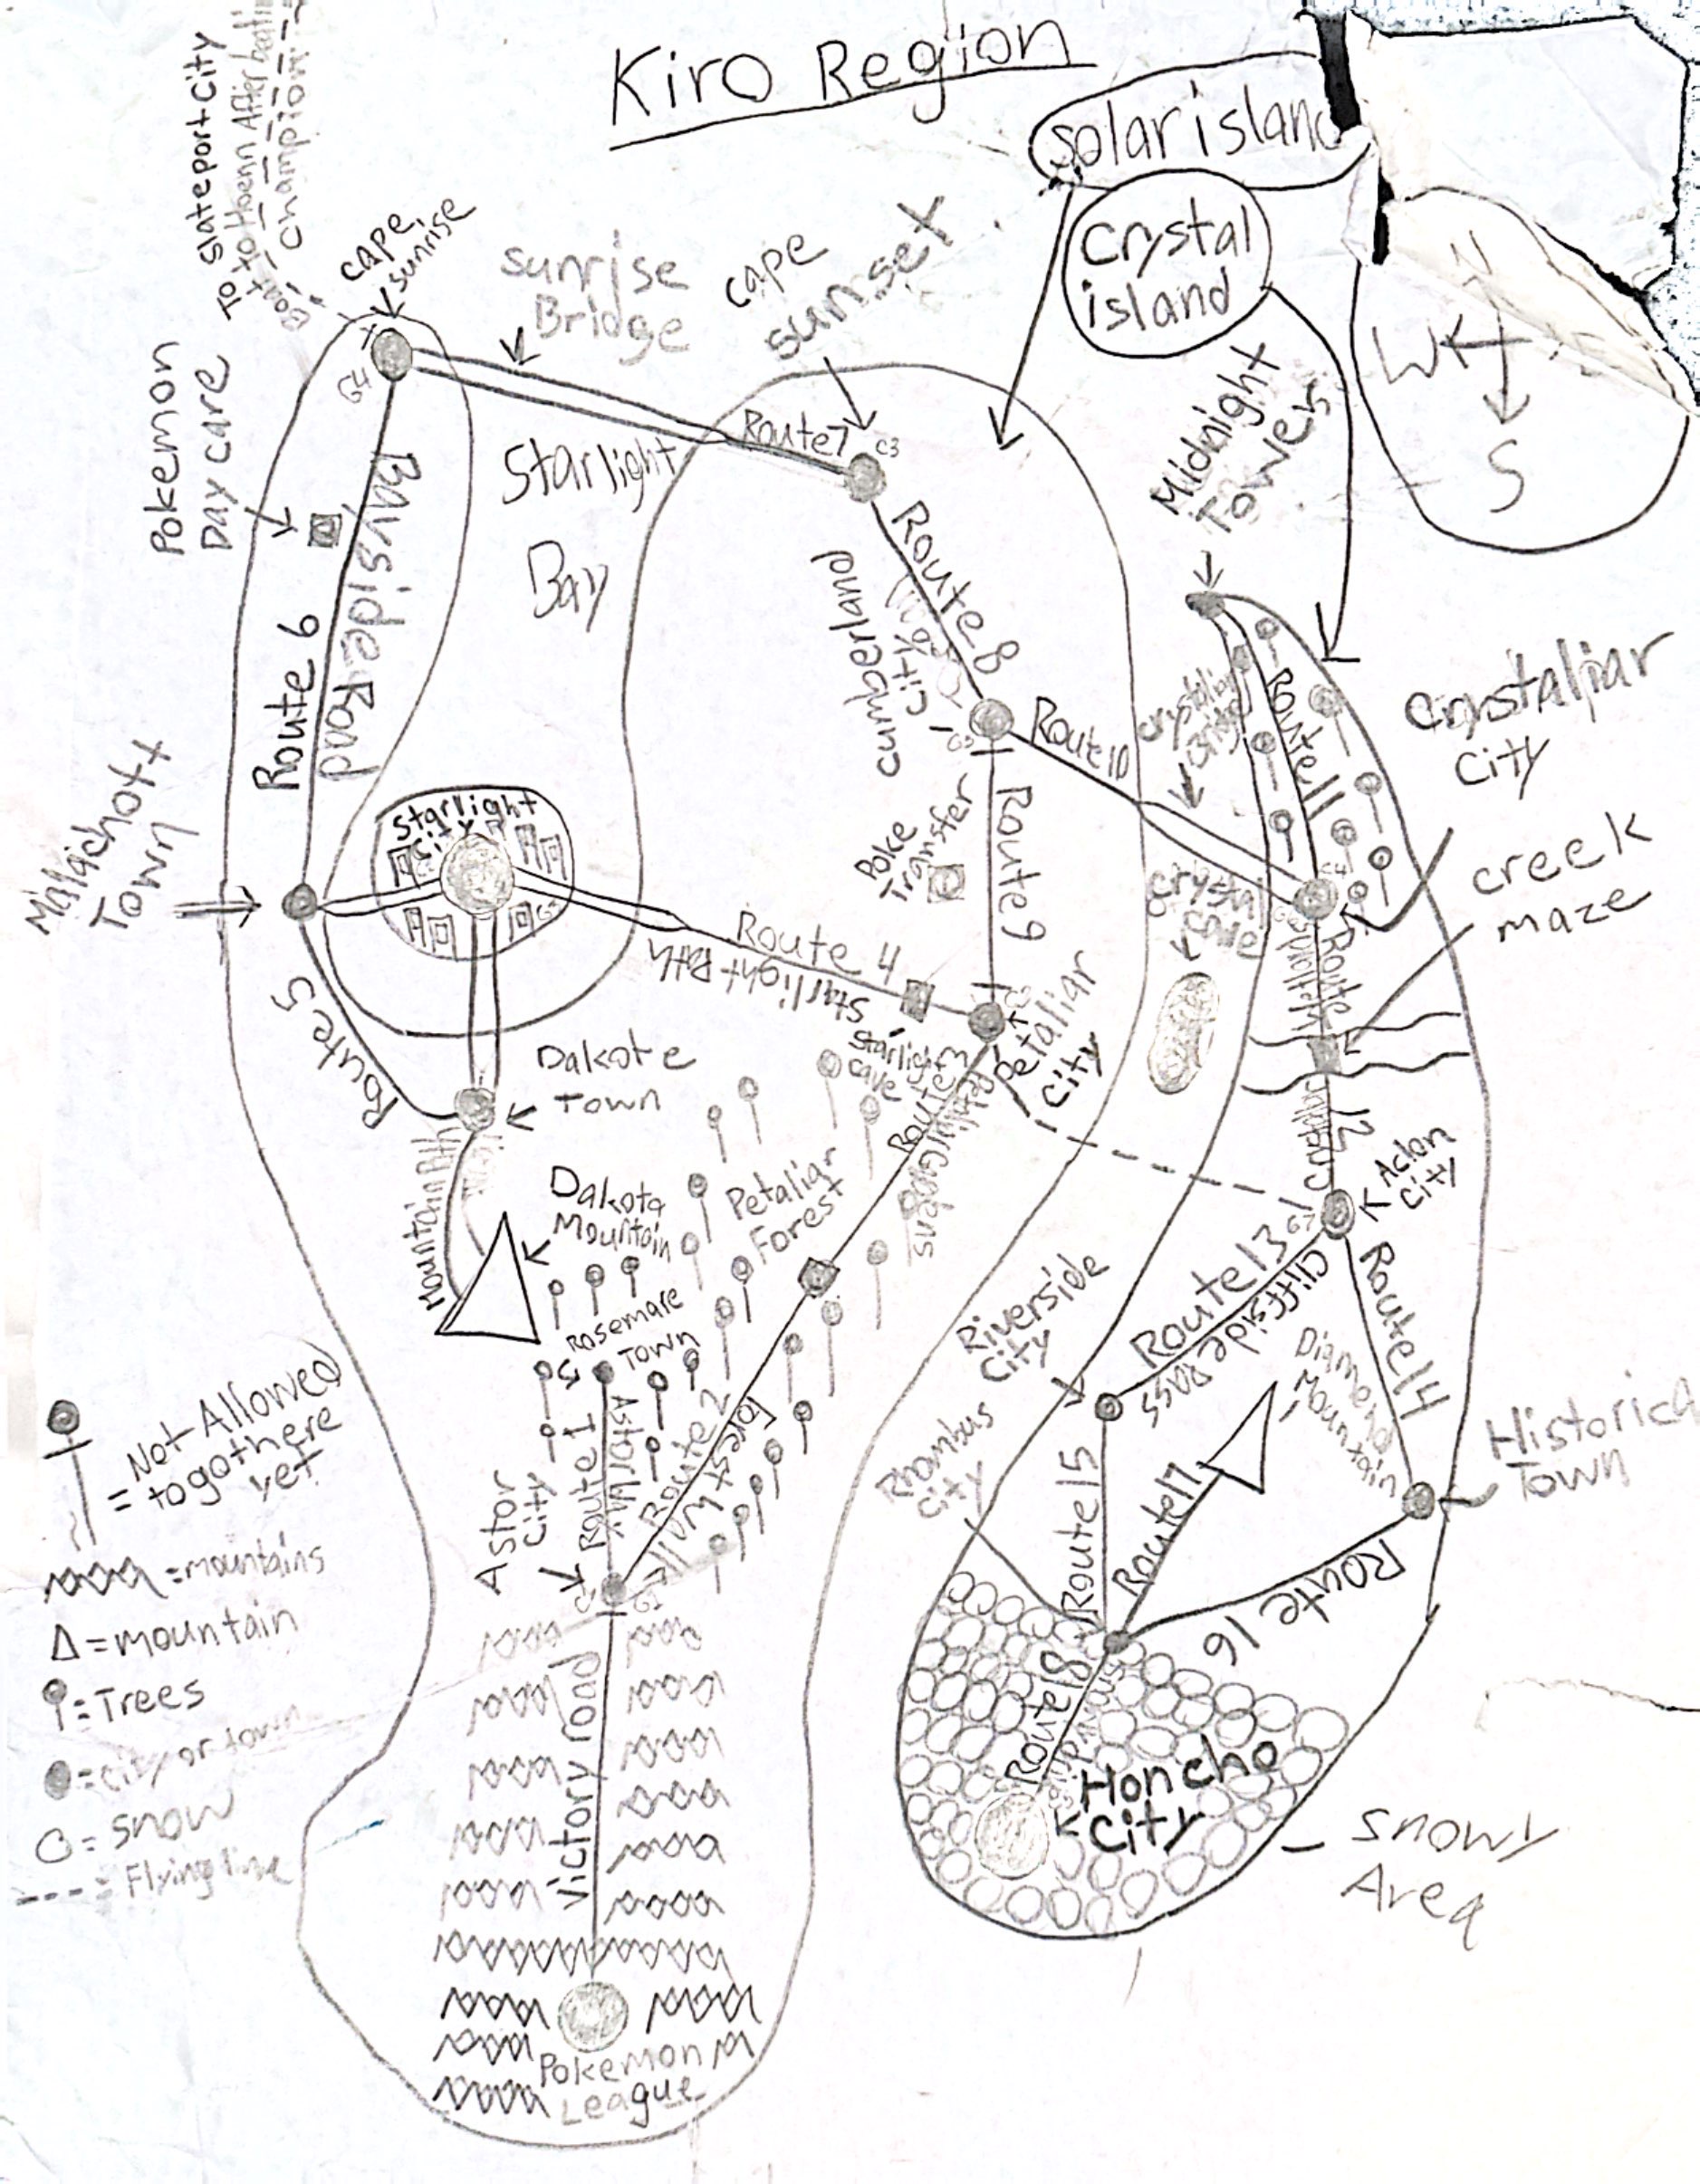 Kiro Region
To Slateport City
solar island
crystal
island
cape
sunrise
sunrise
Bridge
cape
sunset
W
S
Pokemon
Day care
G4
Route 7
Starlight
Bay
Midnight
Tower
Route 6
Bayside Road
Route 8
cumberland
city
crystaliar
Bridge
Route 11
crystaliar
city
Route 10
starlight
city
Poke
Transfer
Route 9
Town
creek
maze
Route 4
Starlight Path
Petaliar
city
Route
12
Route 5
Dakote
Town
Starlight
cave
Route 3
Mountain Path
Dakota
Mountain
Petaliar
Forest
Aclen
City
Route 13
Cliffside Pass
Route 14
Rosemare
Town
Riverside
City
Diamond
Mountain
Historica
Town
Rhombus
city
Route 1
Route 2
Astor
City
Route 15
Route 17
Route 16
= Not Allowed
to go there
yet
= mountains
Δ = mountain
= Trees
= city or town
O = snow
--- = Flying line
Victory road
Route 18
Honcho
City
Snowy
Area
Pokemon
League